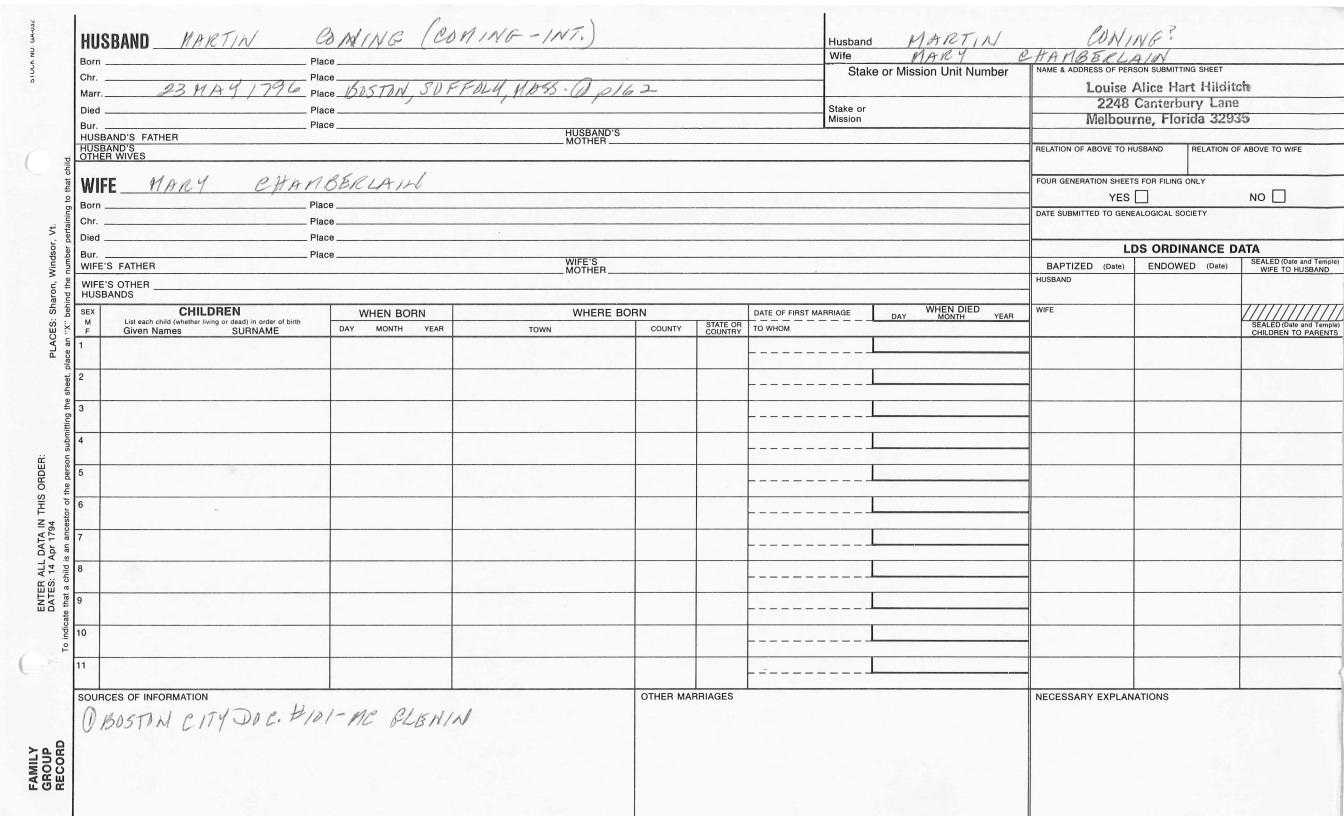 HUSBAND MARTIN CONING (COMING-INT.)
Born Place
Chr. Place
Marr. 23 MAY 1796 Place BOSTON, SUFFOLK, MASS. ① p162
Died Place
Bur. Place
HUSBAND'S FATHER HUSBAND'S MOTHER
HUSBAND'S OTHER WIVES
Husband MARTIN CONING?
Wife MARY CHAMBERLAIN
Stake or Mission Unit Number
Stake or Mission
NAME & ADDRESS OF PERSON SUBMITTING SHEET
Louise Alice Hart Hilditch
2248 Canterbury Lane
Melbourne, Florida 32935
RELATION OF ABOVE TO HUSBAND RELATION OF ABOVE TO WIFE
FOUR GENERATION SHEETS FOR FILING ONLY
YES NO
DATE SUBMITTED TO GENEALOGICAL SOCIETY
WIFE MARY CHAMBERLAIN
Born Place
Chr. Place
Died Place
Bur. Place
WIFE'S FATHER WIFE'S MOTHER
WIFE'S OTHER HUSBANDS
LDS ORDINANCE DATA
BAPTIZED (Date) ENDOWED (Date) SEALED (Date and Temple) WIFE TO HUSBAND
HUSBAND
WIFE
SEALED (Date and Temple) CHILDREN TO PARENTS
SEX M F
CHILDREN
List each child (whether living or dead) in order of birth
Given Names SURNAME
WHEN BORN
DAY MONTH YEAR
WHERE BORN
TOWN COUNTY STATE OR COUNTRY
DATE OF FIRST MARRIAGE
TO WHOM
WHEN DIED
DAY MONTH YEAR
1
2
3
4
5
6
7
8
9
10
11
SOURCES OF INFORMATION
① BOSTON CITY DOC. #101-MC
OTHER MARRIAGES
NECESSARY EXPLANATIONS
STOCK NO.
PLACES: Sharon, Windsor, Vt.
ENTER ALL DATA IN THIS ORDER:
DATES: 14 Apr 1794
To indicate that a child is an ancestor of the person submitting the sheet, place an "X" behind the number pertaining to that child.
FAMILY GROUP RECORD